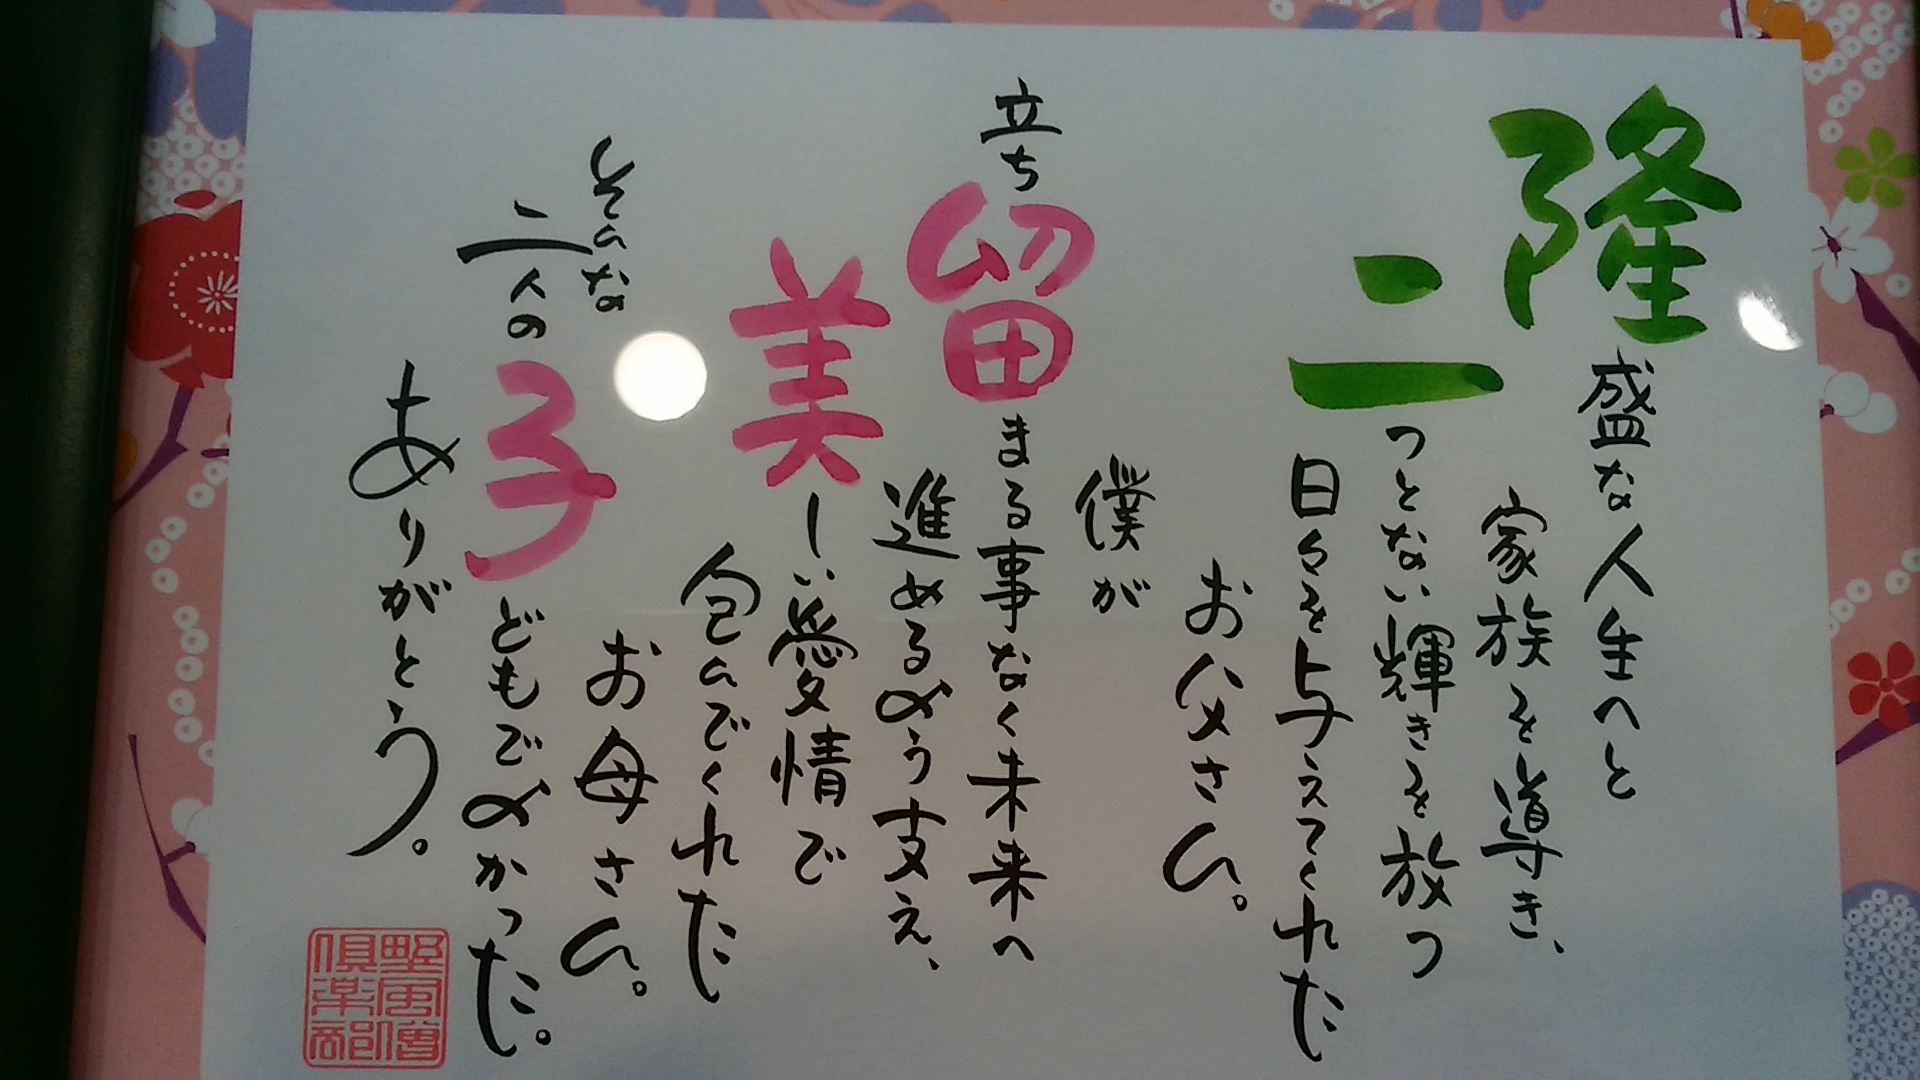 隆盛な人生へと
家族を導き、
二つとない輝きを放つ
日々を与えてくれた
お父さん。
僕が
立ち留まる事なく未来へ
進めるよう支え、
美しい愛情で
包んでくれた
お母さん。
そんな
二人の子どもでよかった。
ありがとう。